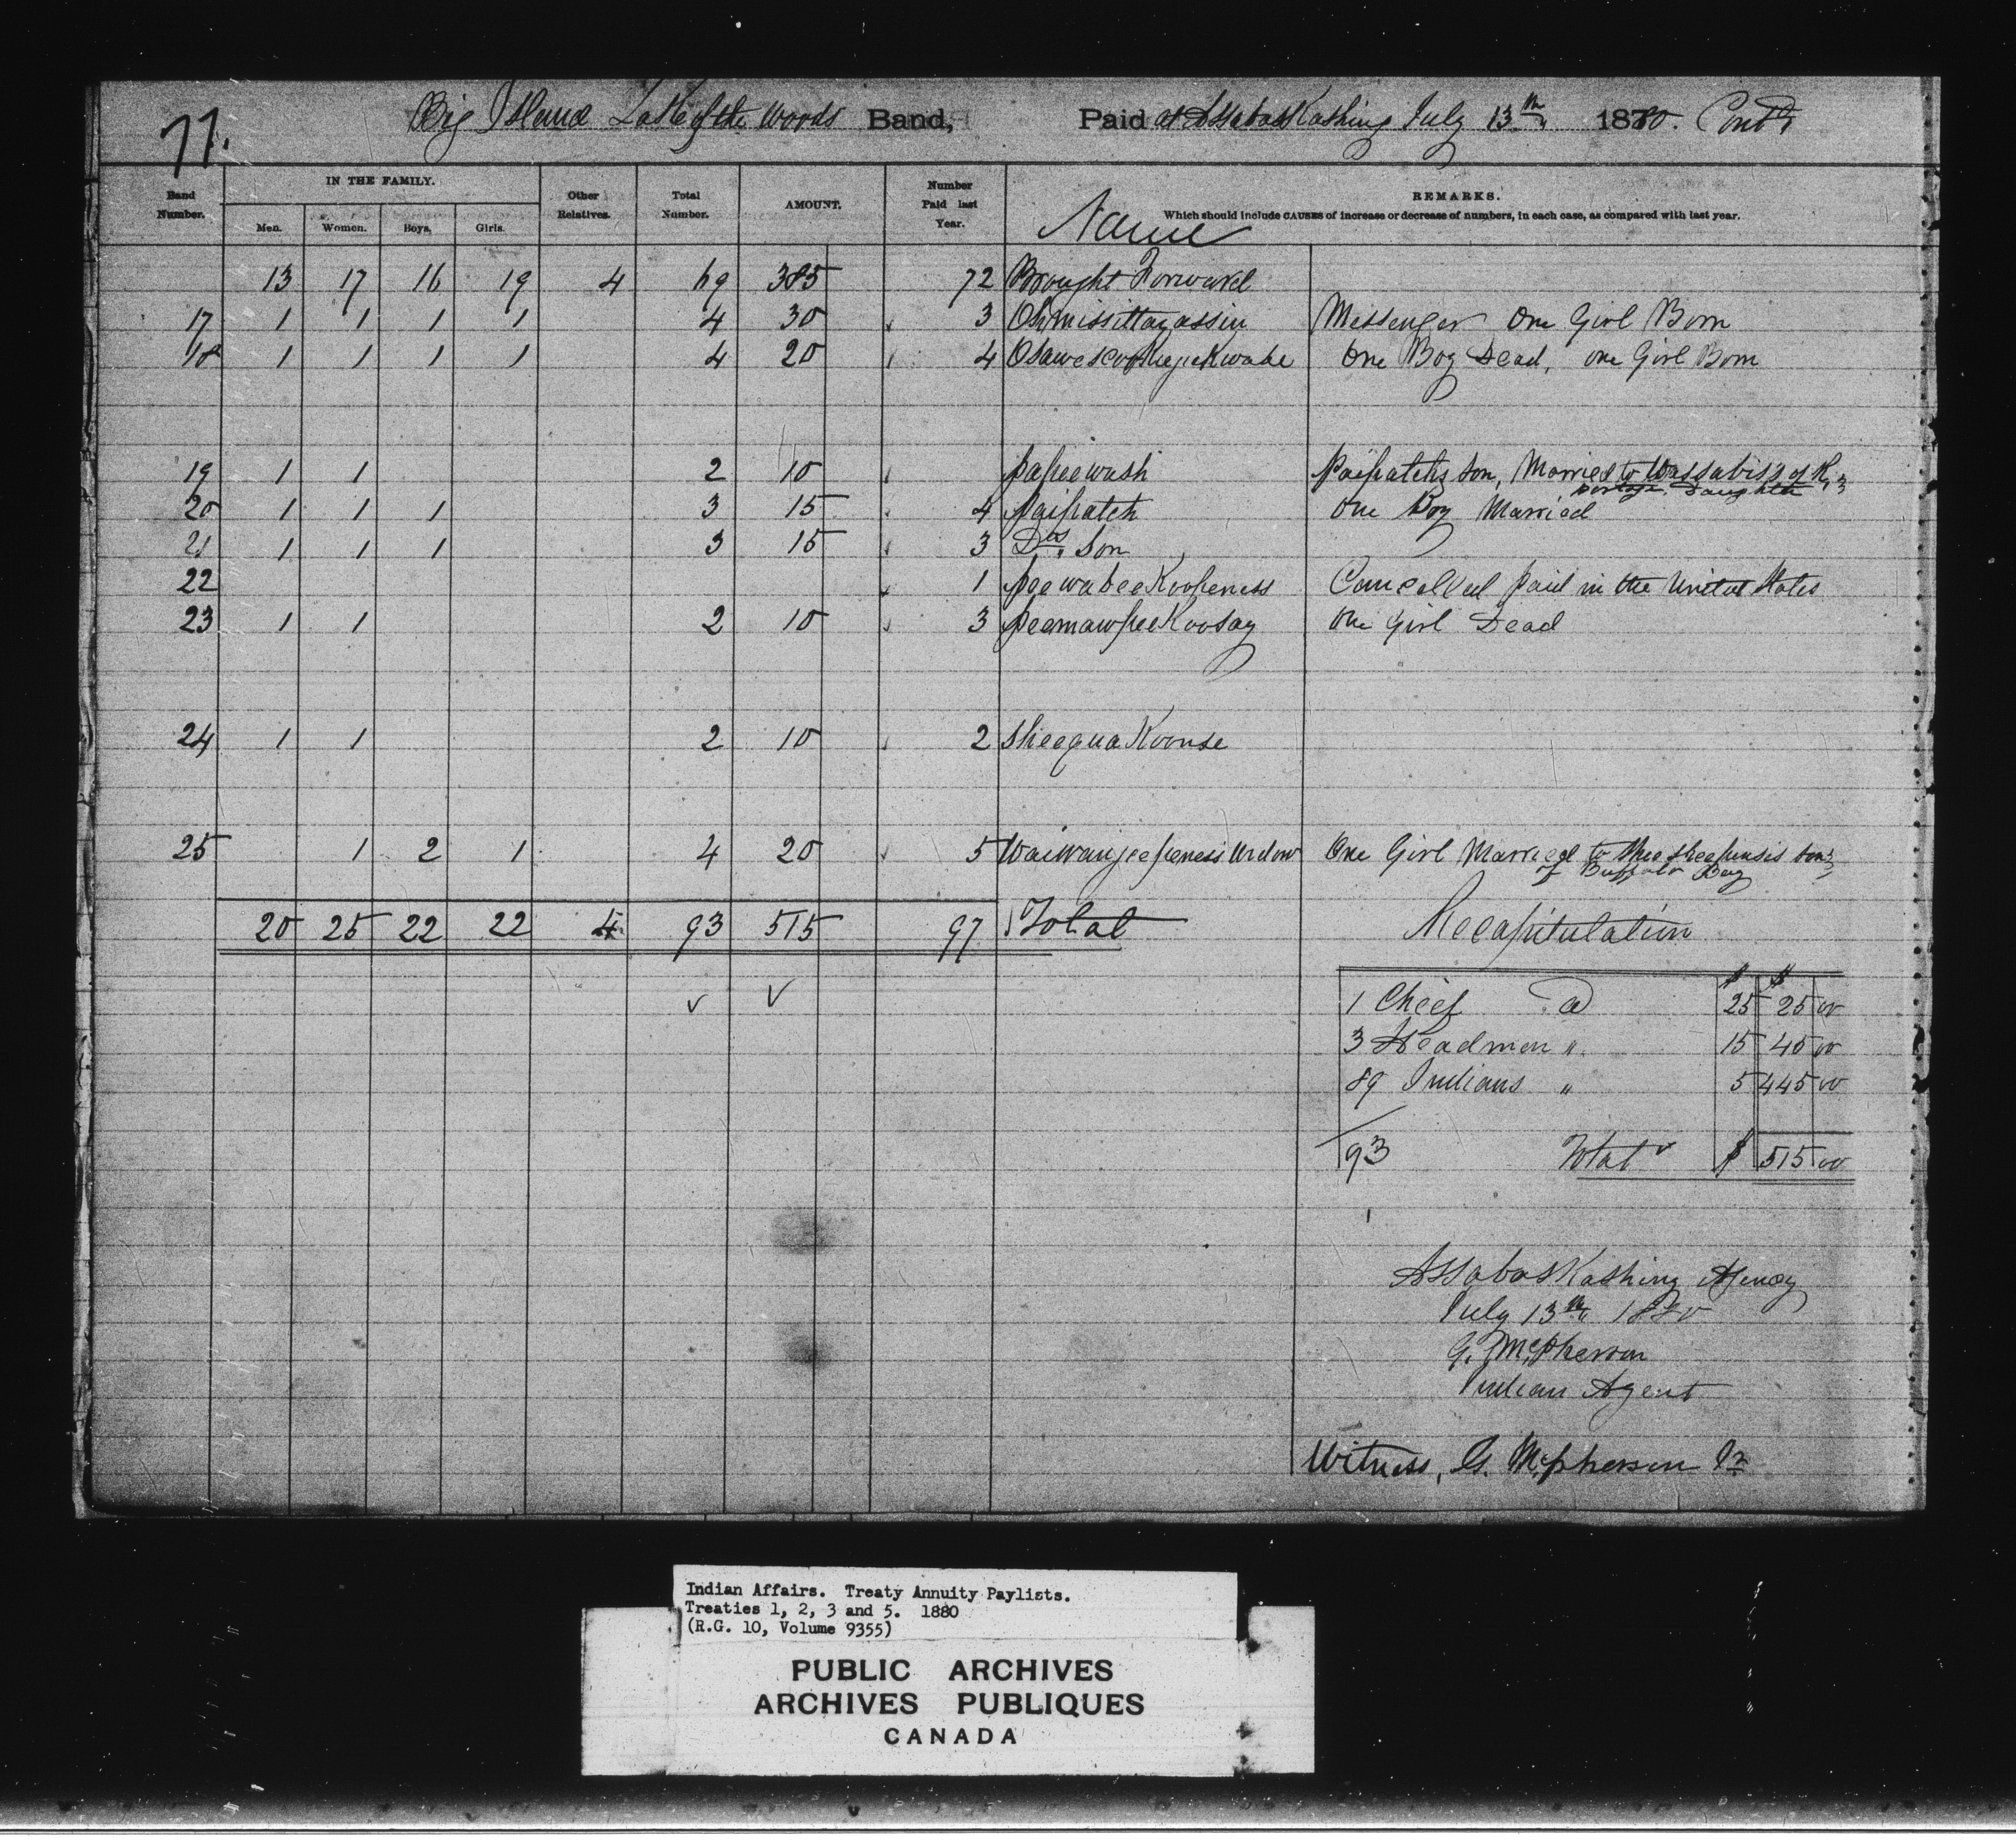 77.
Big Island Lake of the Woods Band, Paid at Assabaskashing July 13th 1880. Contd
Band Number. IN THE FAMILY. Other Relatives. Total Number. AMOUNT. Number Paid last Year. Name REMARKS.
Men. Women. Boys. Girls. Which should include CAUSES of increase or decrease of numbers, in each case, as compared with last year.
13 17 16 19 4 69 385 72 Brought Forward
17 1 1 1 1 4 30 3 Messenger One Girl Born
18 1 1 1 1 4 20 4 One Boy Dead, one Girl Born
19 1 1 2 10 papeewash Paipatch's son, Married to Wassabis's of
portage Daughter
20 1 1 1 3 15 4 Paipatch One Boy Married
21 1 1 1 3 15 3 Do's Son
22 1 peewabeeKoopeness Cancelled paid in the United States
23 1 1 2 10 3 peemawpeeKoosay One Girl Dead
24 1 1 2 10 2 SheequaKoonse
25 1 2 1 4 20 5 Waiwanjeepeness Widow One Girl Married to son
of Buffalo Bay
20 25 22 22 4 93 515 97 Total Recapitulation
$ $
1 Chief @ 25 25 00
3 Headmen " 15 45 00
89 Indians " 5 445 00
93 Total $ 515 00
Assabaskashing Agency
July 13th 1880
G. McPherson
Indian Agent
Witness, G. McPherson Jr
Indian Affairs. Treaty Annuity Paylists.
Treaties 1, 2, 3 and 5. 1880
(R.G. 10, Volume 9355)
PUBLIC ARCHIVES
ARCHIVES PUBLIQUES
CANADA